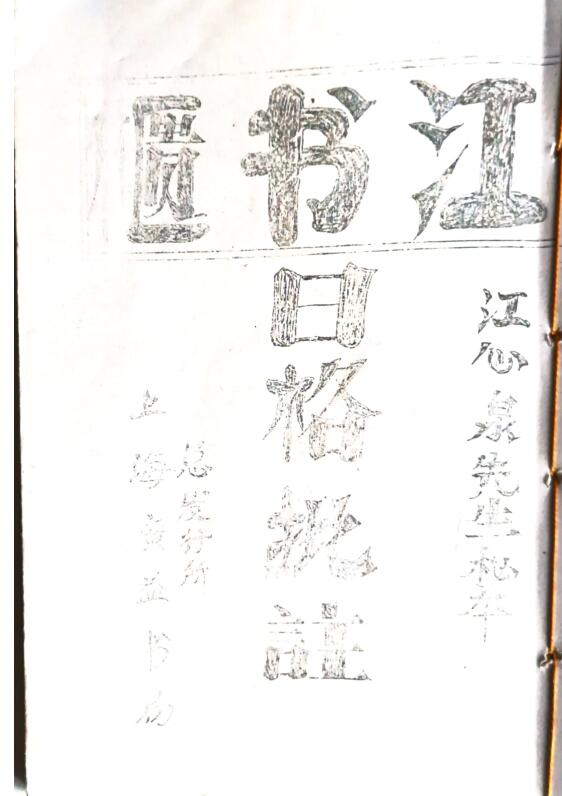 江书匱
江心泉先生秘本
日格批註
总发行所
上海廣益书局